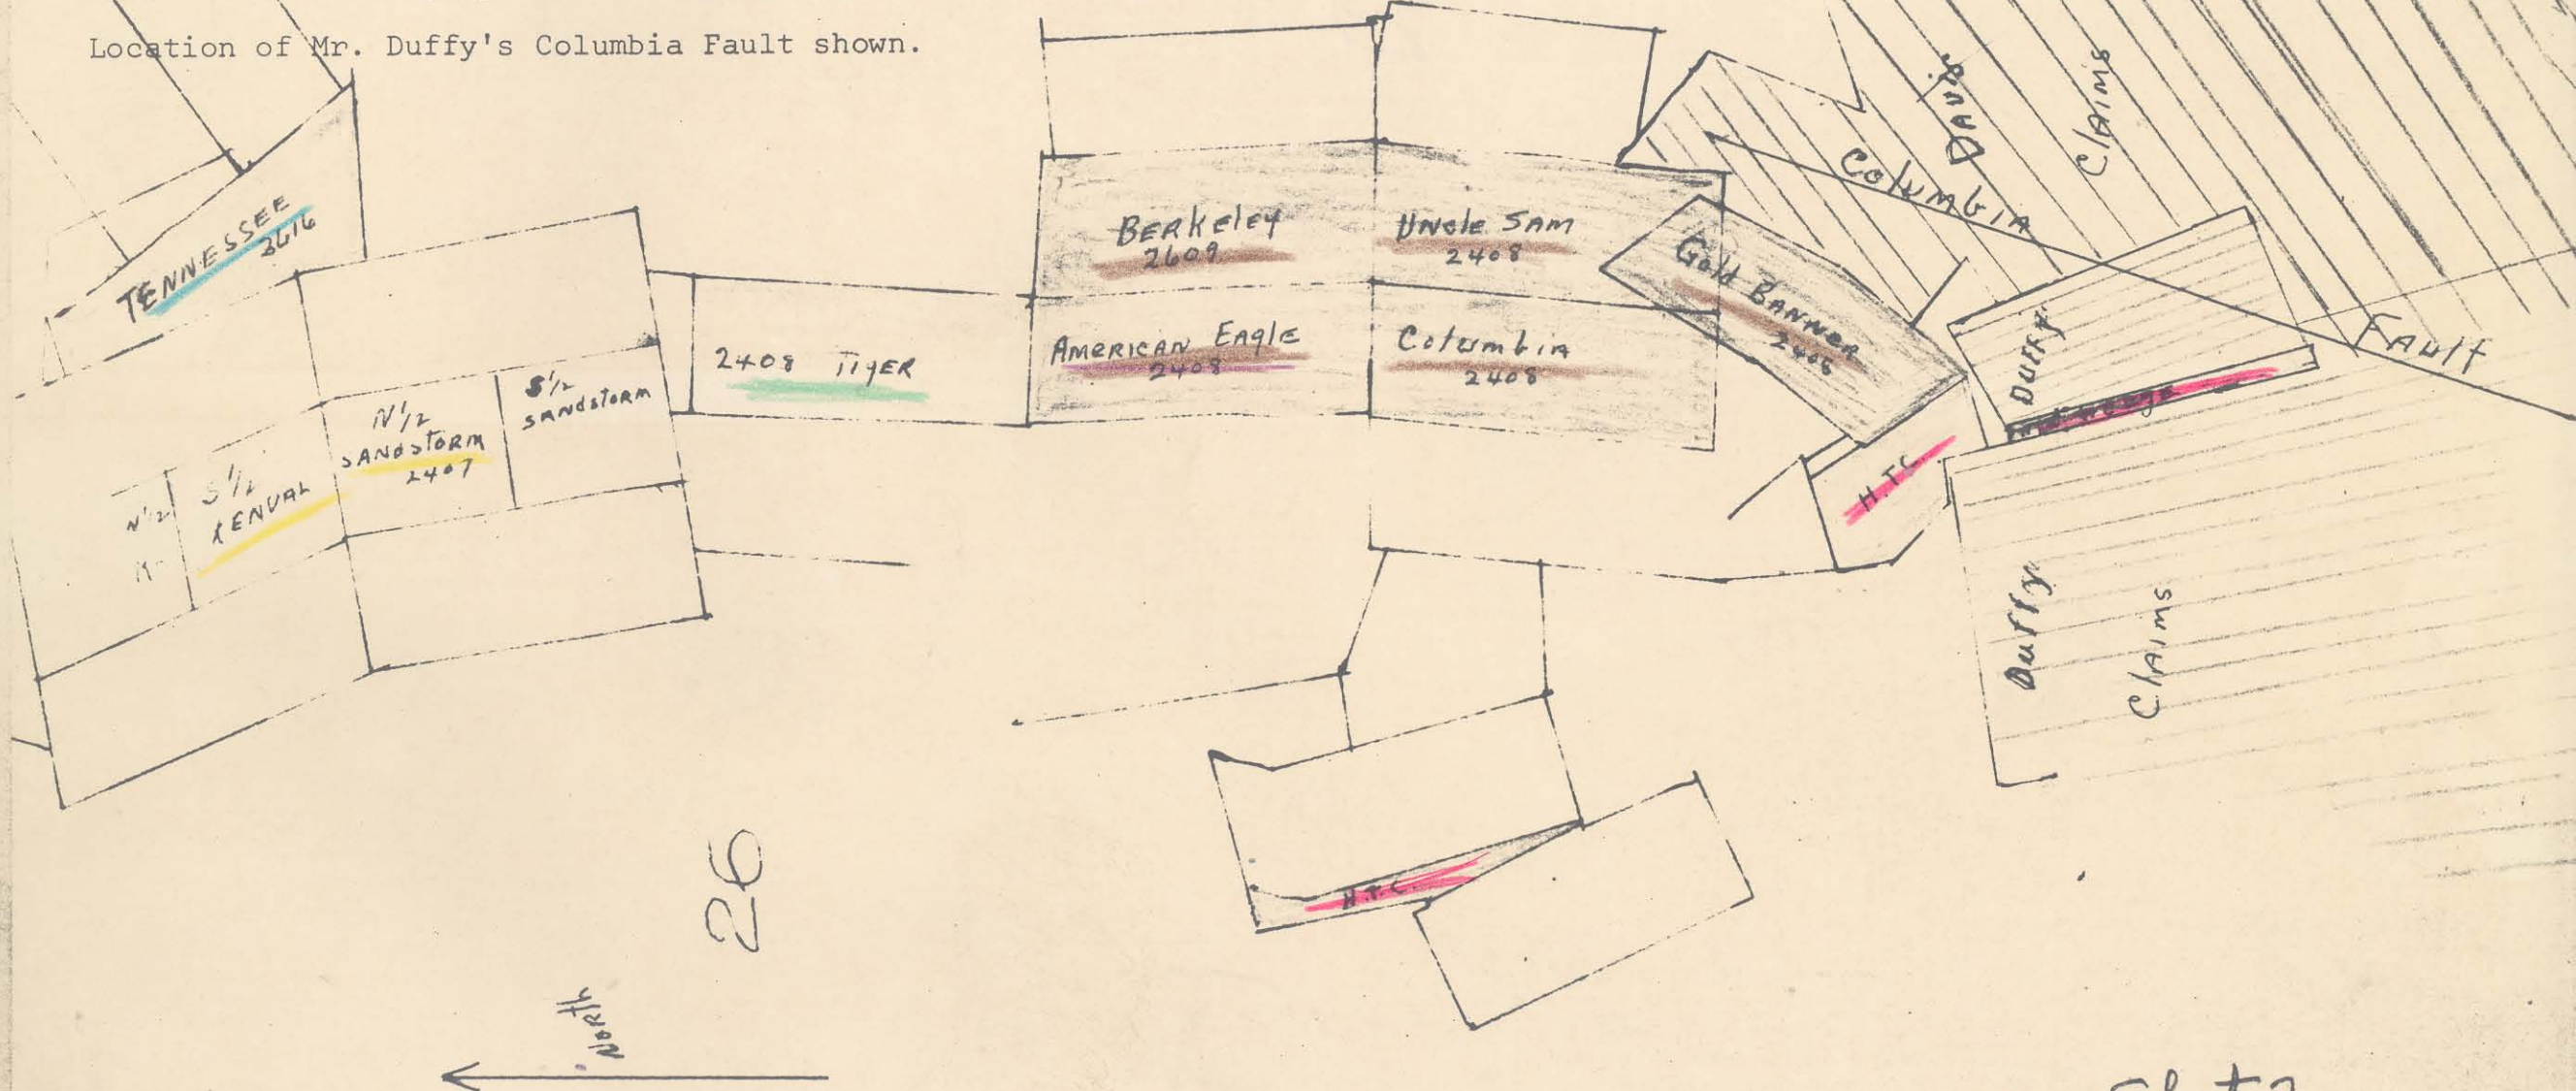 Location of Mr. Duffy's Columbia Fault shown.
TENNESSEE
3616
N 1/2
S 1/2
KENVAL
N 1/2
SANDSTORM
2407
S 1/2
SANDSTORM
2408 TIGER
BERKELEY
2609
UNCLE SAM
2408
AMERICAN EAGLE
2408
Columbia
2408
Gold BANNER
2408
COLUMBIA
FAULT
DAVIS
CLAIMS
DUFFY
H.T.C.
Duffy
CLAIMS
H.T.C.
26
NORTH